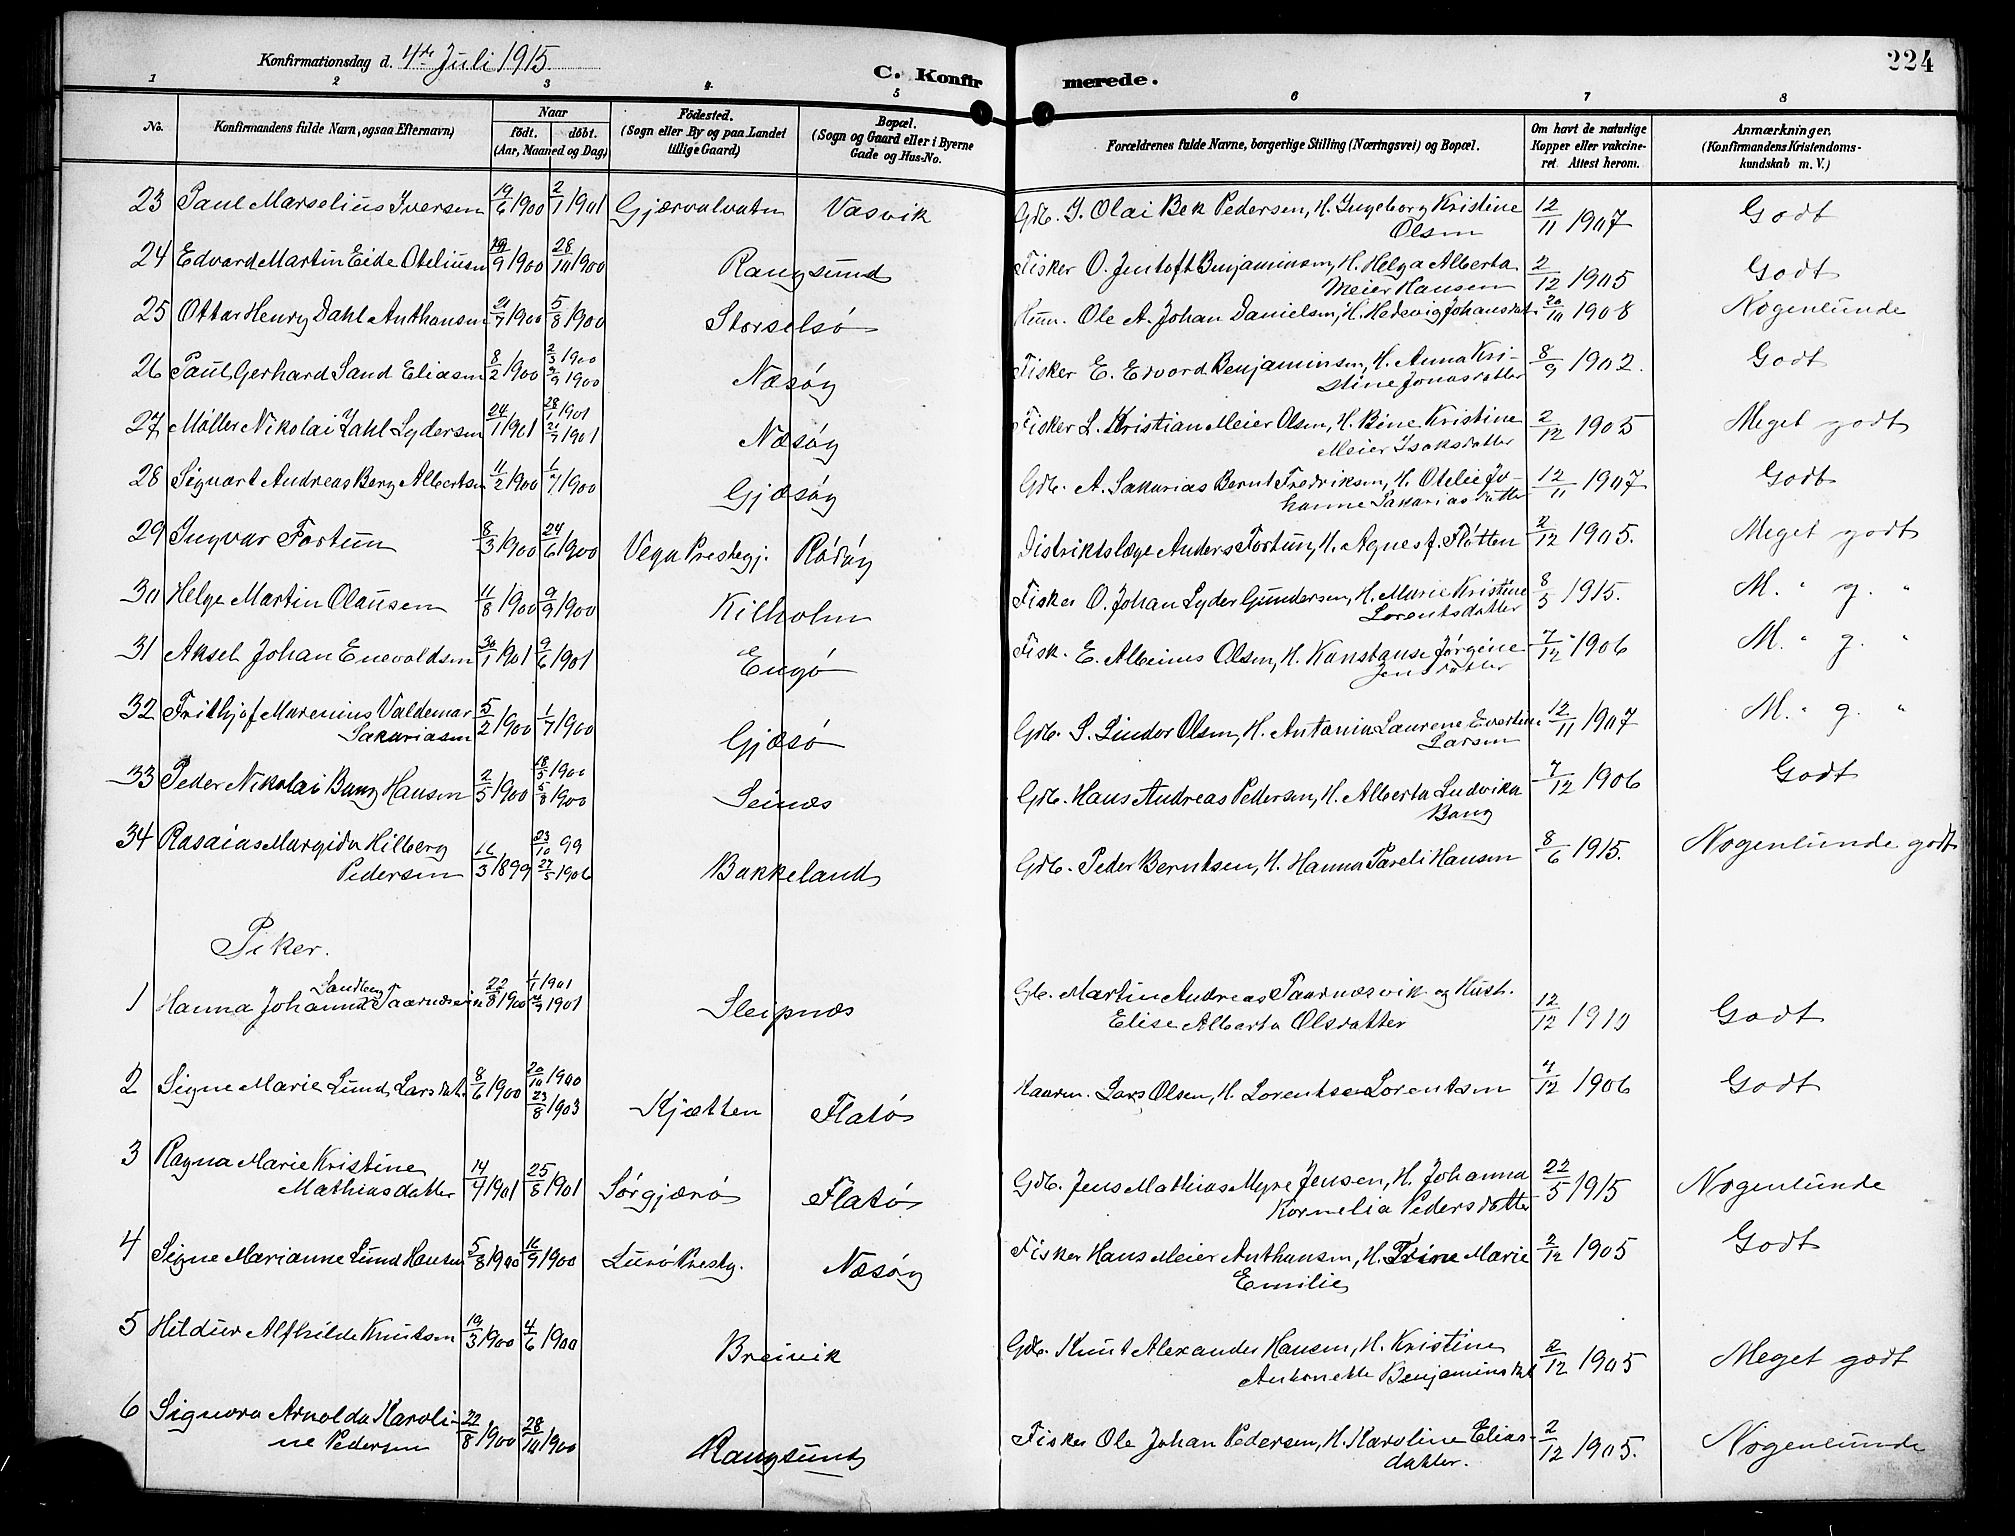 Konfirmationsdag d. 4de Juli 1915. C. Konfirmerede. 224
1 2 3 4 5 6 7 8
No. Konfirmandens fulde Navn, ogsaa Efternavn) Naar født. døbt. (Aar, Maaned og Dag) Fødested. (Sogn eller By og paa Landet tillige Gaard) Bopæl. (Sogn og Gaard eller i Byerne Gade og Hus-No. Forældrenes fulde Navne, borgerlige Stilling (Næringsvei) og Bopæl. Om havt de naturlige Kopper eller vakcineret Attest herom. Anmærkninger. (Konfirmandens Kristendomskundskab m. V.)
23 Paul Marselius Iversen 19/6 1900 2/1 1901 Gjærvalvatn Vasvik Gdb. I. Olai Bek Pedersen, H. Ingeborg Kristine Olsen 12/11 1907 Godt
24 Edvard Martin Eide Oteliusen 19/9 1900 28/10 1900 Rangsund Fisker O. Jentoft Benjaminsen, H. Helga Alberta Meier Hansen 2/12 1905 Godt
25 Ottar Henry Dahl Anthonsen 21/7 1900 5/8 1900 Storselsø Huu. Ole A. Johan Danielsen, H. Hedevig Johansdat. 20/10 1908 Nogenlunde
26 Paul Gerhard Sand Eliasen 8/2 1900 2/3 1900 9/9 1900 Næsøy Fisker E. Edvard Benjaminsen, H. Anna Kristine Jonasdatter 8/9 1902. Godt
27 Møller Nikolai Zahl Lydersen 24/1 1901 28/1 1901 21/7 1901 Næsøy Fisker L. Kristian Meier Olsen, H. Bine Kristine Meier Isaksdatter 2/12 1905 Meget godt
28 Sigvart Andreas Berg Albertsen 11/2 1900 1/7 1900 Gjæsøy Gdb. A. Sakarias Bernt Fredriksen, H. Otelie Johanne Sakariasdatter 12/11 1907 Godt
29 Ingvar Fortun 8/3 1900 24/6 1900 Vega Prestegj. Rødøy Distriktslæge Anders Fortun, H. Agnes f. Fløtten 2/12 1905. Meget godt
30 Helge Martin Olausen 11/8 1900 9/9 1900 Kilholm Fisker O. Johan Lyder Gundersen, H. Marie Kristine Lorentsdatter 8/5 1915. M. " g. "
31 Aksel Johan Enevoldsen 30/1 1901 9/6 1901 Engø Fisk. E. Albinus Olsen, H. Konstanse Jørgine Jensdatter 7/12 1906 M. " g. "
32 Frithjof Marenius Valdemar Sakariasen 5/2 1900 1/7 1900 Gjæsø Gdb. S. Lindor Olsen, H. Antonia Laurene Evertine Larsen 12/11 1907 M. " g. "
33 Peder Nikolai Bang Hansen 2/5 1900 18/5 1900 5/8 1900 Seinæs Gdb. Hans Andreas Pedersen, H. Alberta Ludvika Bang 7/12 1906 Godt
34 Rasaias Margido Hilberg Pedersen 16/3 1899 23/10 99 27/5 1906 Bakkeland Gdb. Peder Berntsen, H. Hanna Pareli Hansen 8/6 1915. Nogenlunde godt
Piker.
1 Hanna Johanna Sandberg Taarnæsvik 22/8 1900 1/1 1901 1901 Sleipnæs Gb. Martin Andreas Taarnæsvik og Hust. Elise Alberta Olsdatter 12/12 1910 Godt
2 Signe Marie Lund Larsdat. 8/6 1900 20/10 1900 23/8 1903 Kjætten Flatø Kaarm. Lars Olsen, H. Lorentse Lorentsen 7/12 1906 Godt
3 Ragna Marie Kristine Mathiasdatter 14/4 1901 25/8 1901 Sørgjærø Flatø Gdb. Jens Mathias Myre Jensen, H. Johanna Kornelia Pedersdatter 22/5 1915 Nogenlunde
4 Signe Marianne Lund Hansen 5/8 1900 16/9 1900 Lurø Prestg. Næsøy Fisker Hans Meier Anthonsen, H. Trine Marie Emilie 2/12 1905 Godt
5 Hildur Alfhilde Knutsen 19/3 1900 4/6 1900 Breivik Gdb. Knut Alexander Hansen, H. Kristine Antonette Benjaminsdat. 2/12 1905 Meget godt
6 Signora Arnolda Karoline Pedersen 22/8 1900 28/10 1900 Rangsund Fisker Ole Johan Pedersen, H. Karoline Eliasdatter. 2/12 1905. Nogenlunde